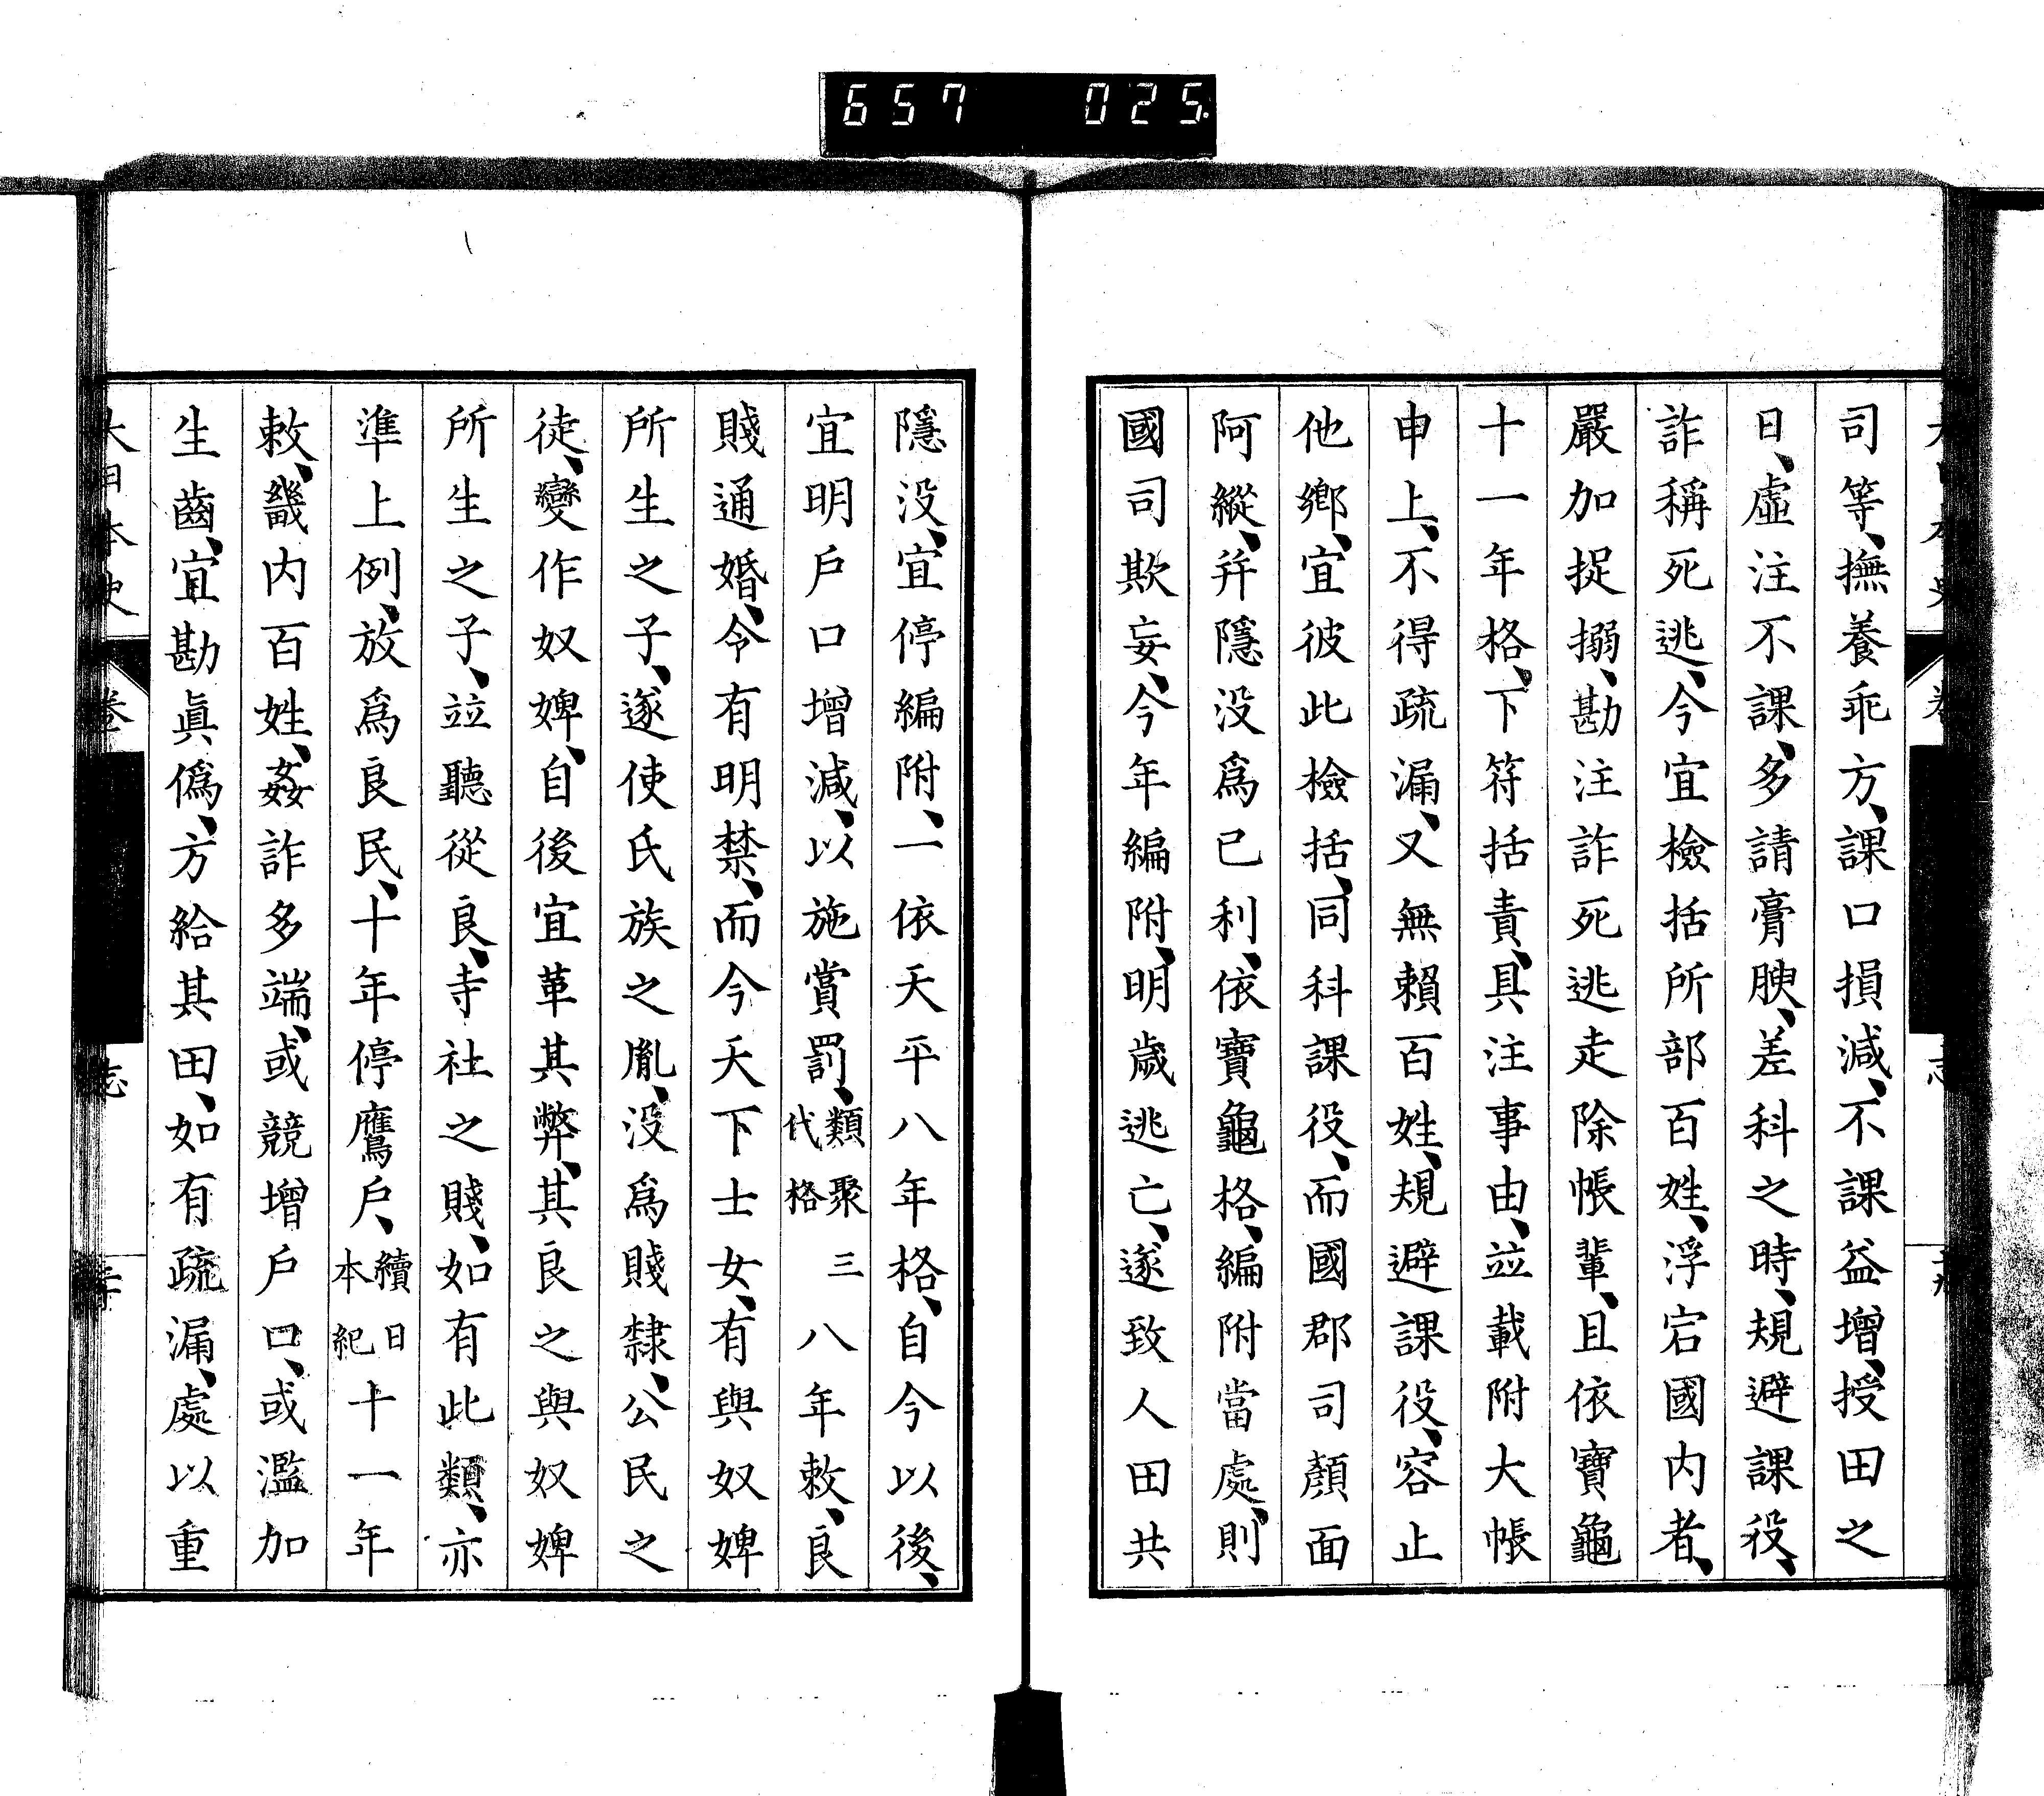 657 025
司等、撫養乖方、課口損減、不課益增、授田之
日、虛注不課、多請膏腴、差科之時、規避課役、
詐稱死逃、今宜檢括所部百姓、浮宕國内者、
嚴加捉搦、勘注詐死逃走除帳輩、且依寶龜
十一年格、下符括責、具注事由、竝載附大帳
申上、不得疏漏、又無賴百姓、規避課役、容止
他鄉、宜彼此檢括、同科課役、而國郡司顏面
阿縱、幷隱没爲已利、依寶龜格、編附當處、則
國司欺妄、今年編附、明歲逃亡、遂致人田共
隱没、宜停編附、一依天平八年格、自今以後、
宜明戶口增減、以施賞罰、類聚三代格 八年敕、良
賤通婚、令有明禁、而今天下士女、有與奴婢
所生之子、遂使氏族之胤、没爲賤隸、公民之
徒、變作奴婢、自後宜革其弊、其良之與奴婢
所生之子、竝聽從良、寺社之賤、如有此類、亦
準上例、放爲良民、十年停鷹戶、續日本紀 十一年
敕、畿内百姓、姦詐多端、或競增戶口、或濫加
生齒、宜勘眞僞、方給其田、如有疏漏、處以重
大日本史 卷 志